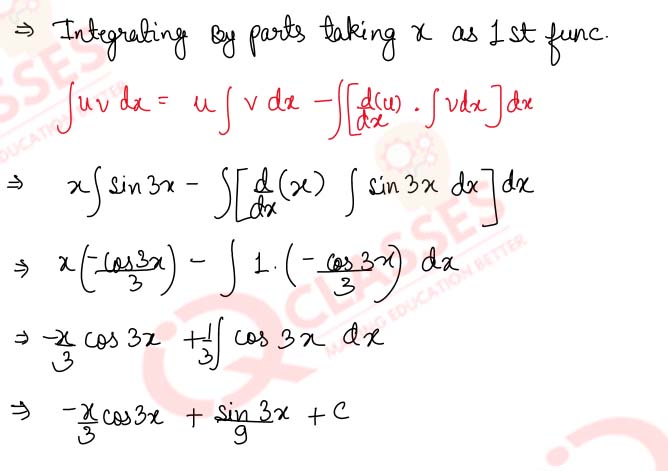 ⇒ Integrating by parts taking x as 1st func.
∫uv dx = u∫v dx − ∫[d(u)/dx · ∫vdx]dx
⇒ x∫sin3x − ∫[d/dx(x) ∫sin3x dx]dx
⇒ x(−cos3x/3) − ∫1·(−cos3x/3) dx
⇒ −x/3 cos 3x + 1/3∫cos 3x dx
⇒ −x/3 cos3x + sin 3x/9 + C
IQ CLASSES
MAKING EDUCATION BETTER